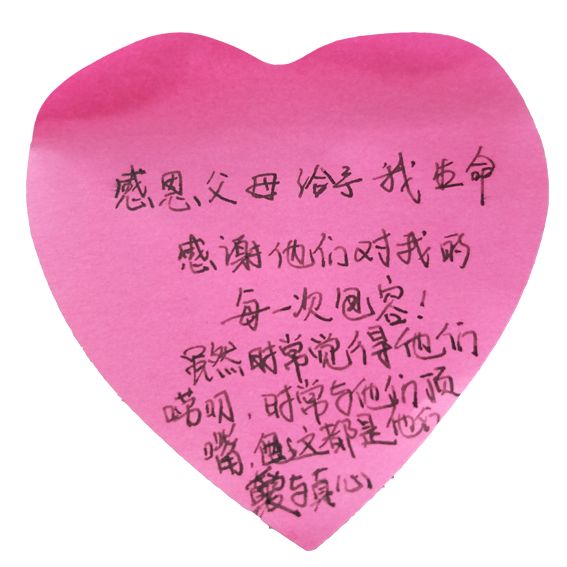 感恩父母给予我生命
感谢他们对我的
每一次包容！
虽然时常觉得他们
唠叨，时常与他们顶
嘴，但这都是他们
爱与真心